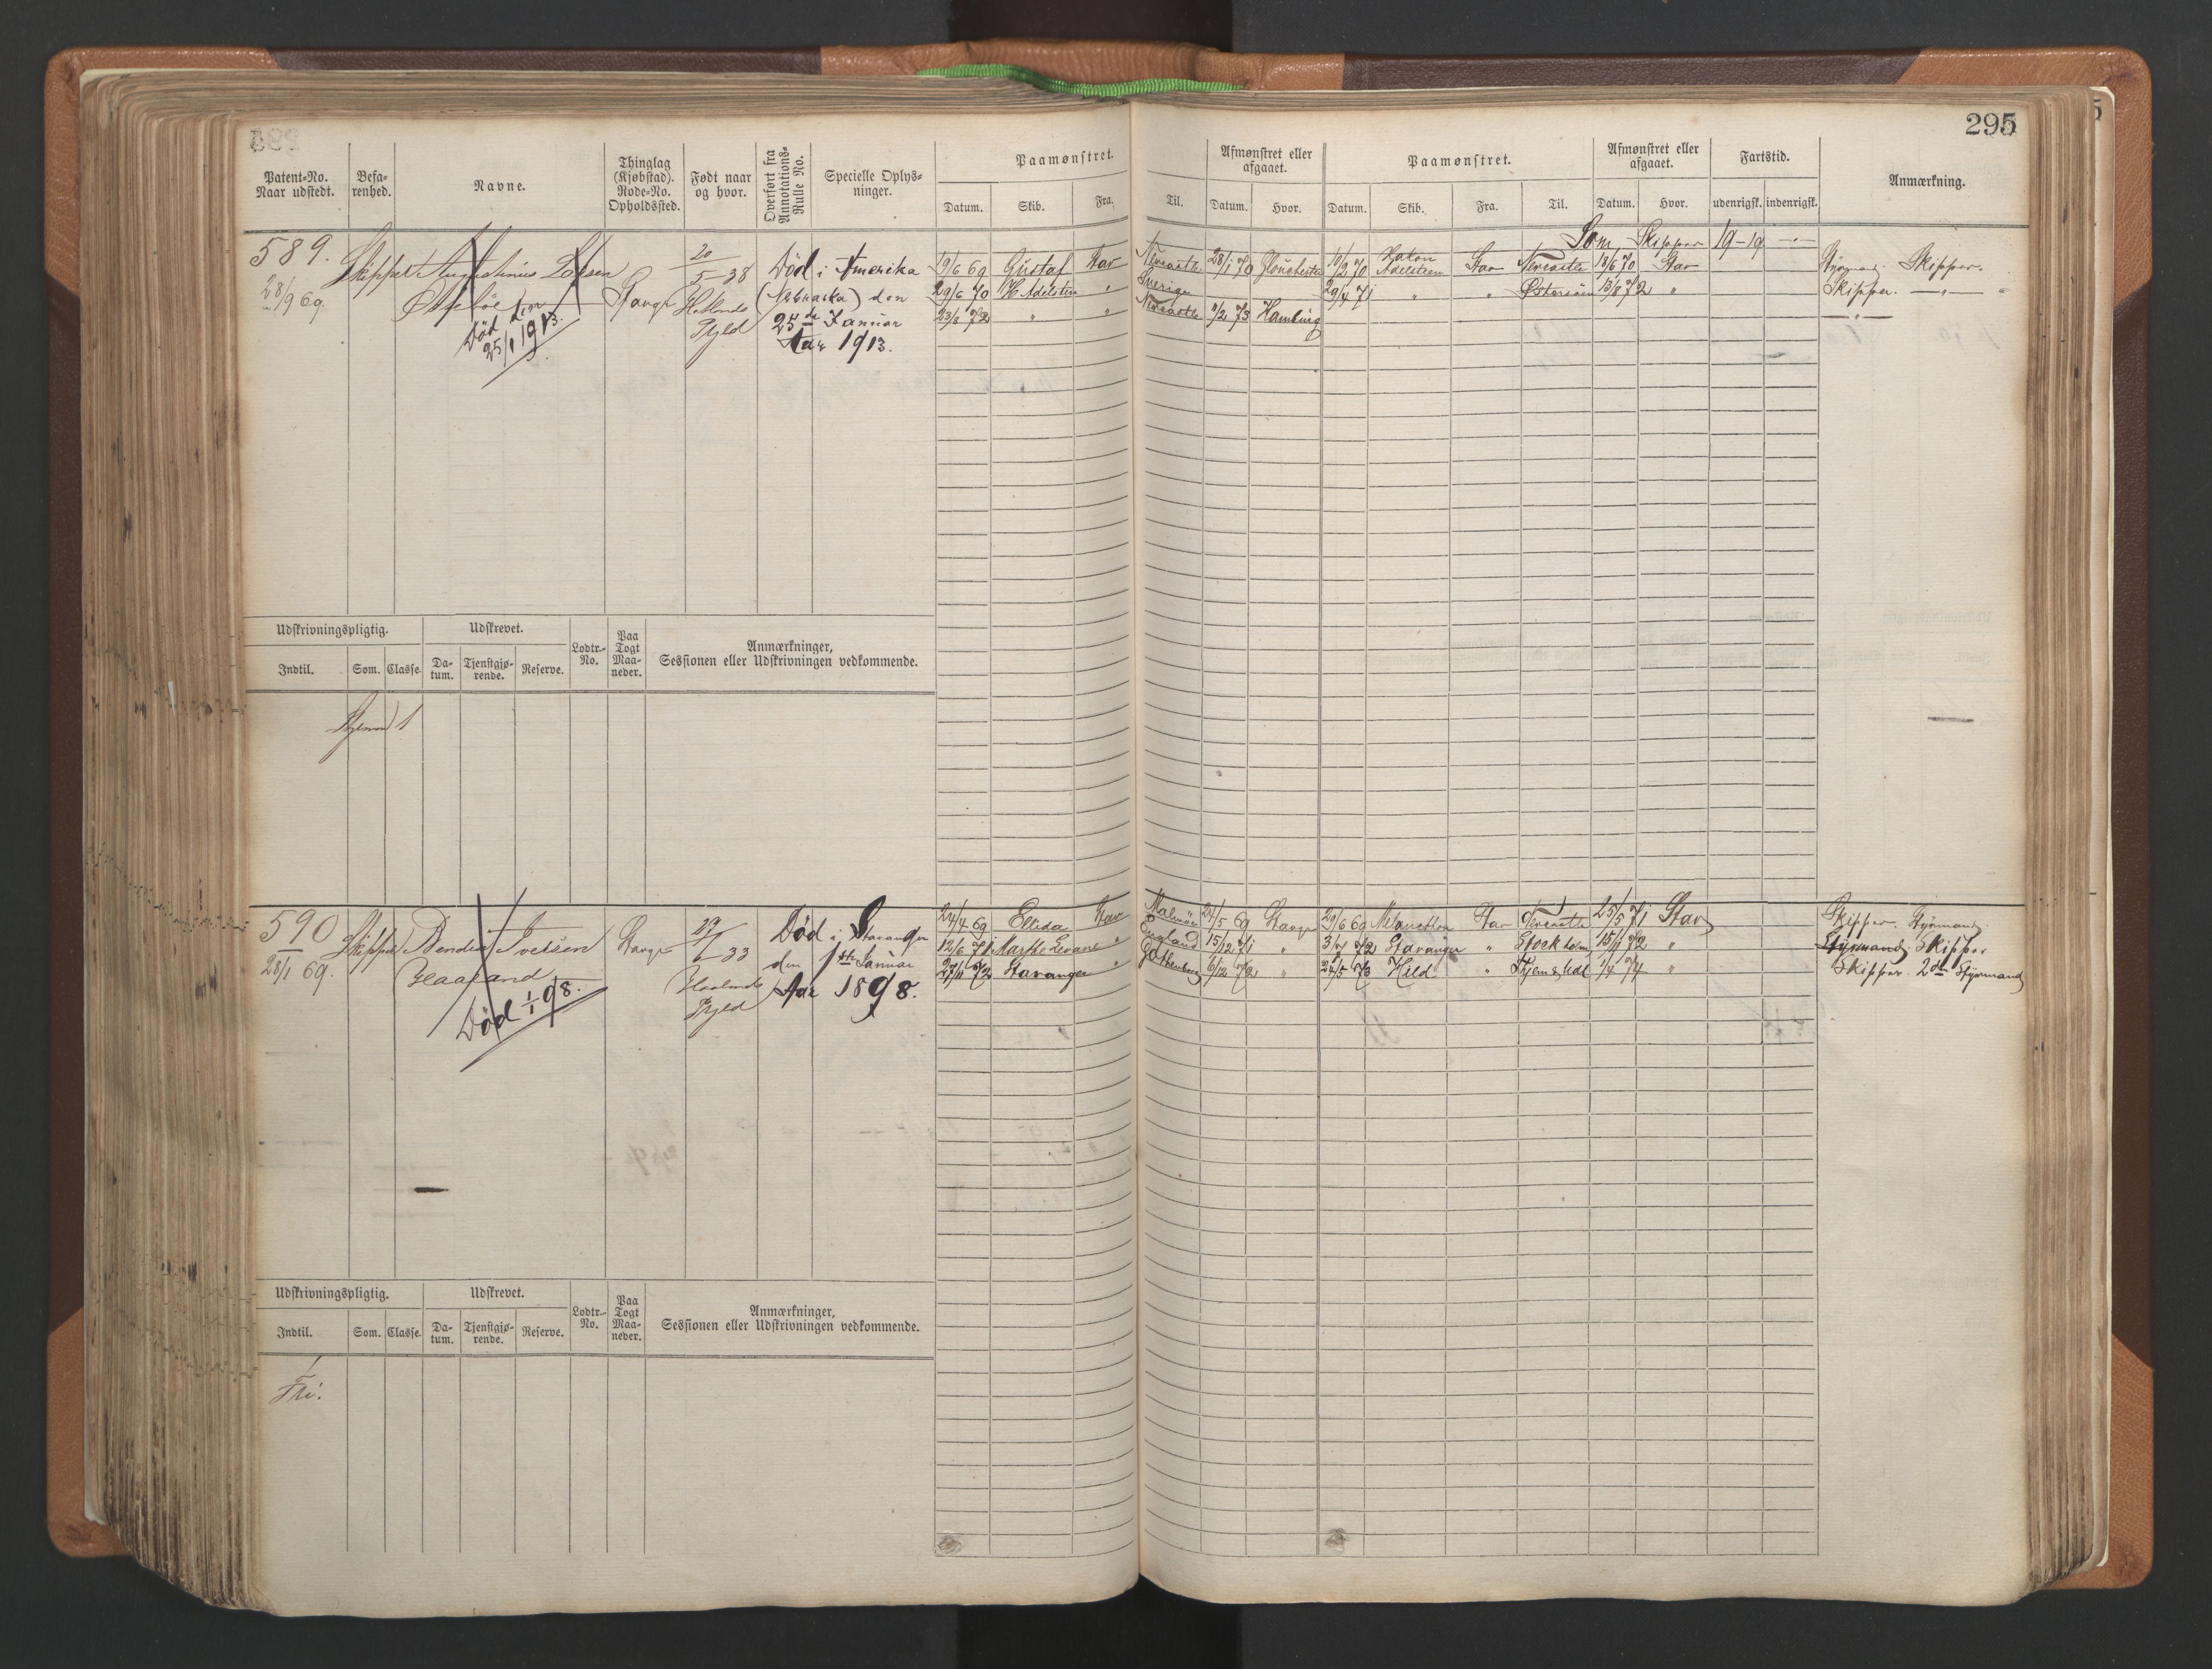 295
Patent-No. Naar udstedt.
Befarenhed.
Navne.
Thinglag (Kjøbstad). Rode-No. Opholdssted.
Født naar og hvor.
Overført fra Annotations-Rulle No.
Specielle Oplysninger.
Paamønstret.
Datum.
Skib.
Fra.
Til.
Afmønstret eller afgaaet.
Datum.
Hvor.
Paamønstret.
Datum.
Skib.
Fra.
Til.
Afmønstret eller afgaaet.
Datum.
Hvor.
Fartstid.
udenrigsk.
indenrigsk.
Anmærkning.
Som Skipper 19-19
589.
28/9 69.
Skipper
Død den
25/1 1913.
Stavgr
20
5-38
Død i Amerika
(Nebraska) den
25de Januar
Aar 1913.
19/6 69 Gustaf Stav Newcastle 28/1 70
10/2 70 Hakon Adelsteen Stav Newcastle 13/6 70 Stav
Styrmand. Skipper.
29/6 70 H Adelsten " Sverige
29/4 71 " " Østersøen 13/8 72 "
Skipper. —"—
23/8 72 " " Newcastle 11/2 73 Hamburg
—"—
Udskrivningspligtig.
Udskrevet.
Lodtr.-No.
Paa Togt Maaneder.
Anmærkninger, Sessionen eller Udskrivningen vedkommende.
Indtil.
Som.
Classe.
Datum.
Tjenstgjørende.
Reserve.
1
590
28/1 69.
Skipper
Iversen
Død 1/1 98.
Stavgr
33
Død i Stavanger
den 1ste Januar
Aar 1898.
24/4 69 Ellida Stav Malmöe 24/5 69 Stavgr
29/6 69 Melanchton Stav Newcastle 25/5 71 Stav
Skipper. Styrmand.
12/6 71 England 15/12 71 "
3/4 72 Stavanger " Stockholm 15/11 72 "
Styrmand, Skipper
27/11 72 Stavanger " Gothenburg 6/12 72 "
24/5 73 Hild " 1/4 74 "
Skipper. 2den Styrmand
Udskrivningspligtig.
Udskrevet.
Lodtr.-No.
Paa Togt Maaneder.
Anmærkninger, Sessionen eller Udskrivningen vedkommende.
Indtil.
Som.
Classe.
Datum.
Tjenstgjørende.
Reserve.
Fri.